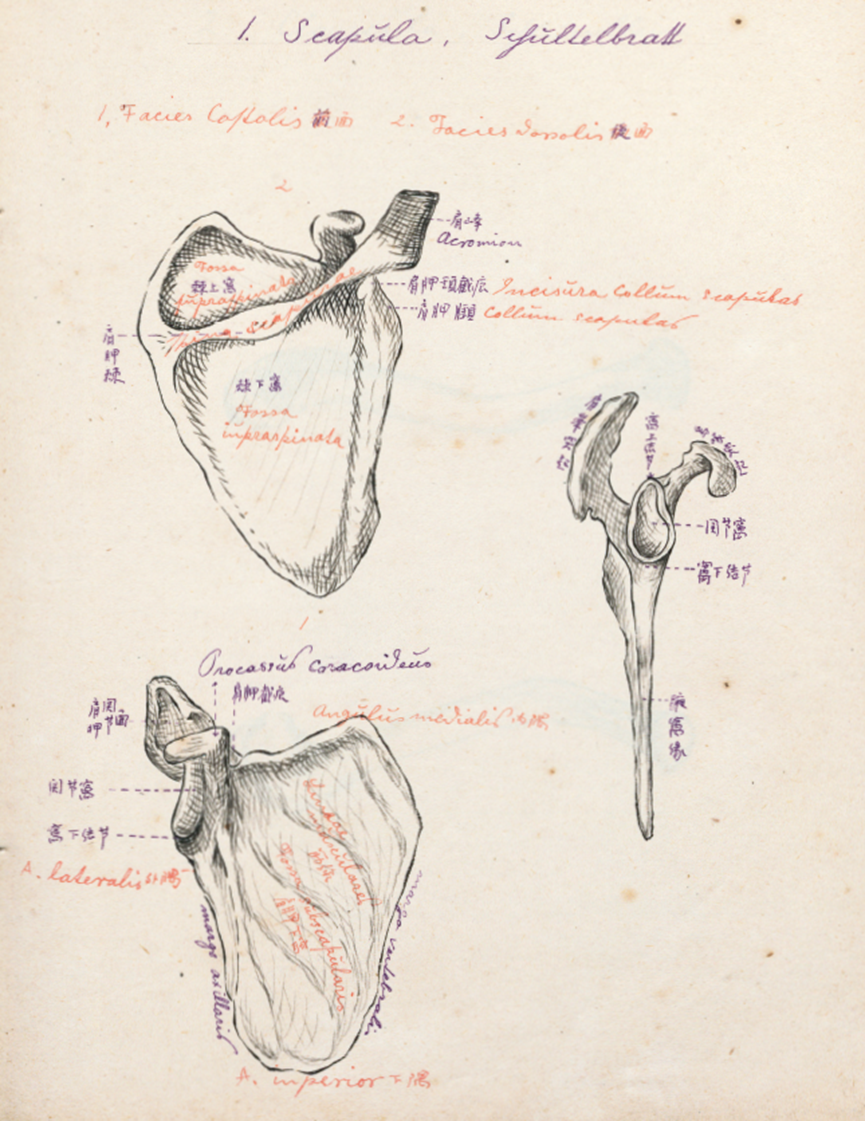 1. Scapula, Schültelbratt
1, Facies Costalis 前面 2. Facies dorsalis 後面
2
肩峰
Acromion
Fossa
棘上窩
supraspinata
肩胛頚截痕 Incisura Collum scapulas
肩胛頚 Collum scapulas
肩胛棘
Spina scapulae
棘下窩
Fossa
infraspinata
窩上结节
関节窩
窩下结节
腋窩缘
1
Processus coracoideus
肩胛截痕
Angulus medialis 内隅
肩胛関节面
関节窩
窩下结节
A. lateralis 外隅
Lineae musculares
Fossa subscapularis
肩胛下窩
margo axillaris
margo vertebralis
A. inferior 下隅